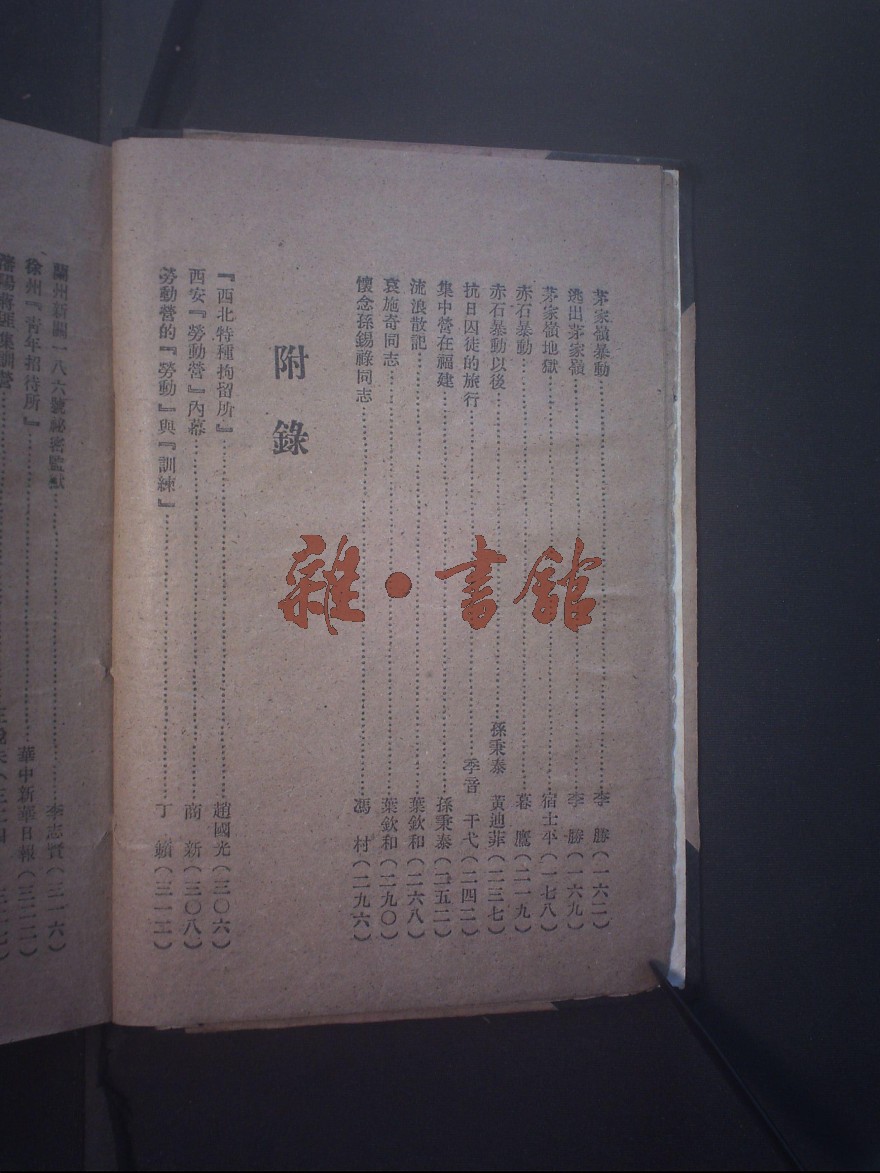 茅家嶺暴動……李　勝(一六二)
逃出茅家嶺……李　勝(一六九)
茅家嶺地獄……宿士平(一七八)
赤石暴動……暮　鷹(二一九)
赤石暴動以後……孫秉泰　黃迪菲(二三七)
抗日囚徒的旅行……季音　干戈(二四二)
集中營在福建……孫秉泰(二五二)
流浪散記……葉欽和(二六八)
哀施奇同志……葉欽和(二九〇)
懷念孫錫祿同志……馮　村(二九六)
附錄
『西北特種拘留所』……趙國光(三〇六)
西安『勞動營』內幕……商　新(三〇八)
勞動營的『勞動』與『訓練』……丁(三一二)
蘭州新關一八六號祕密監獄……李志賢(三一六)
徐州『青年招待所』……華中新華日報(三二二)
集訓營
雜·書館